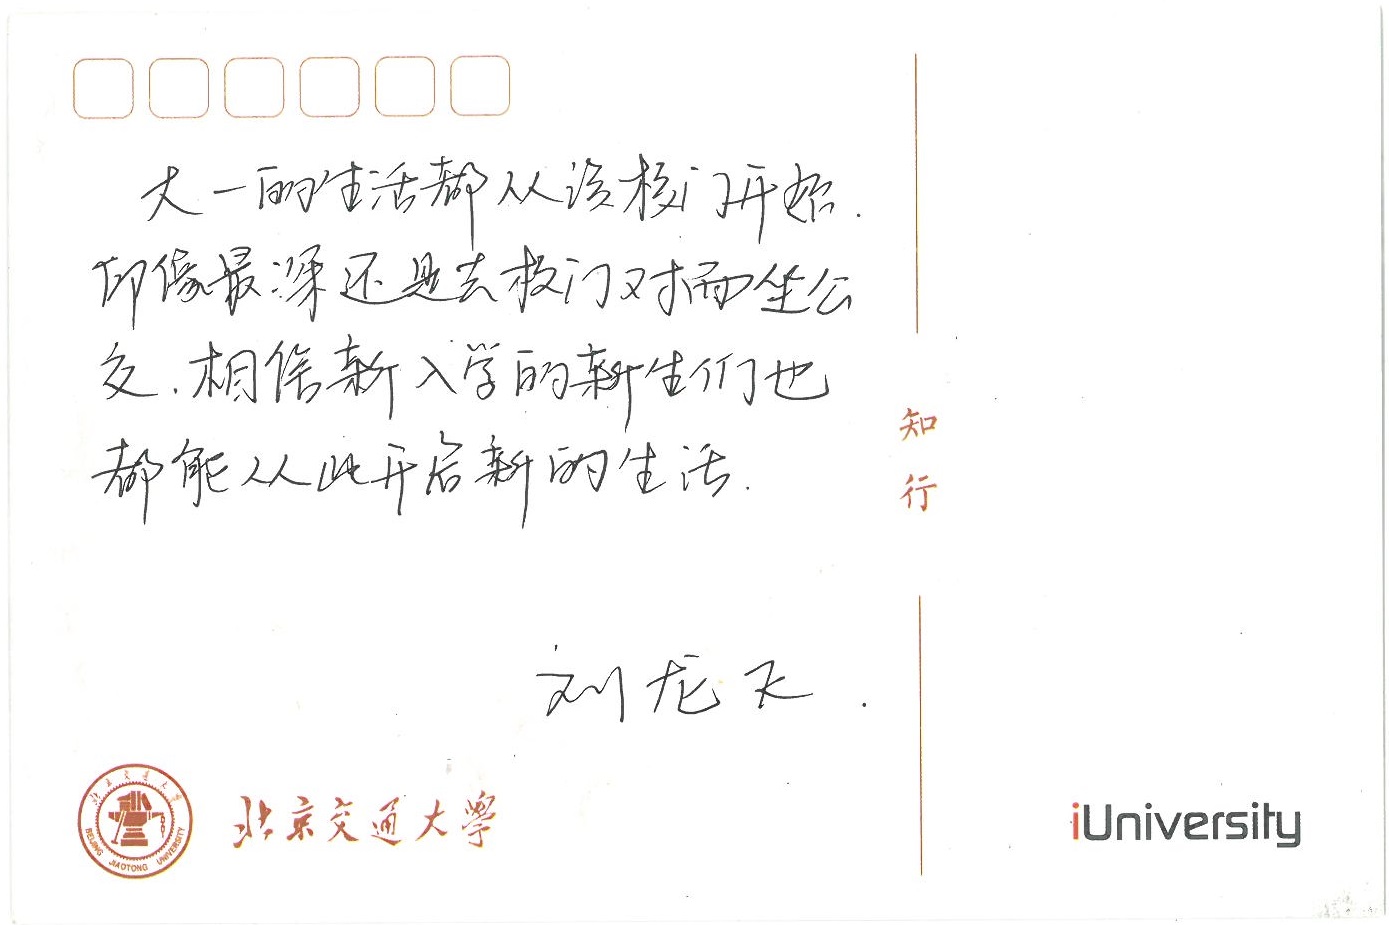 大一的生活都从该校门开始.
印像最深还是去校门对面坐公
交.相信新入学的新生们也
都能从此开启新的生活.
知
行
刘龙飞.
北京交通大學
北京交通大学
BEIJING JIAOTONG UNIVERSITY
iUniversity